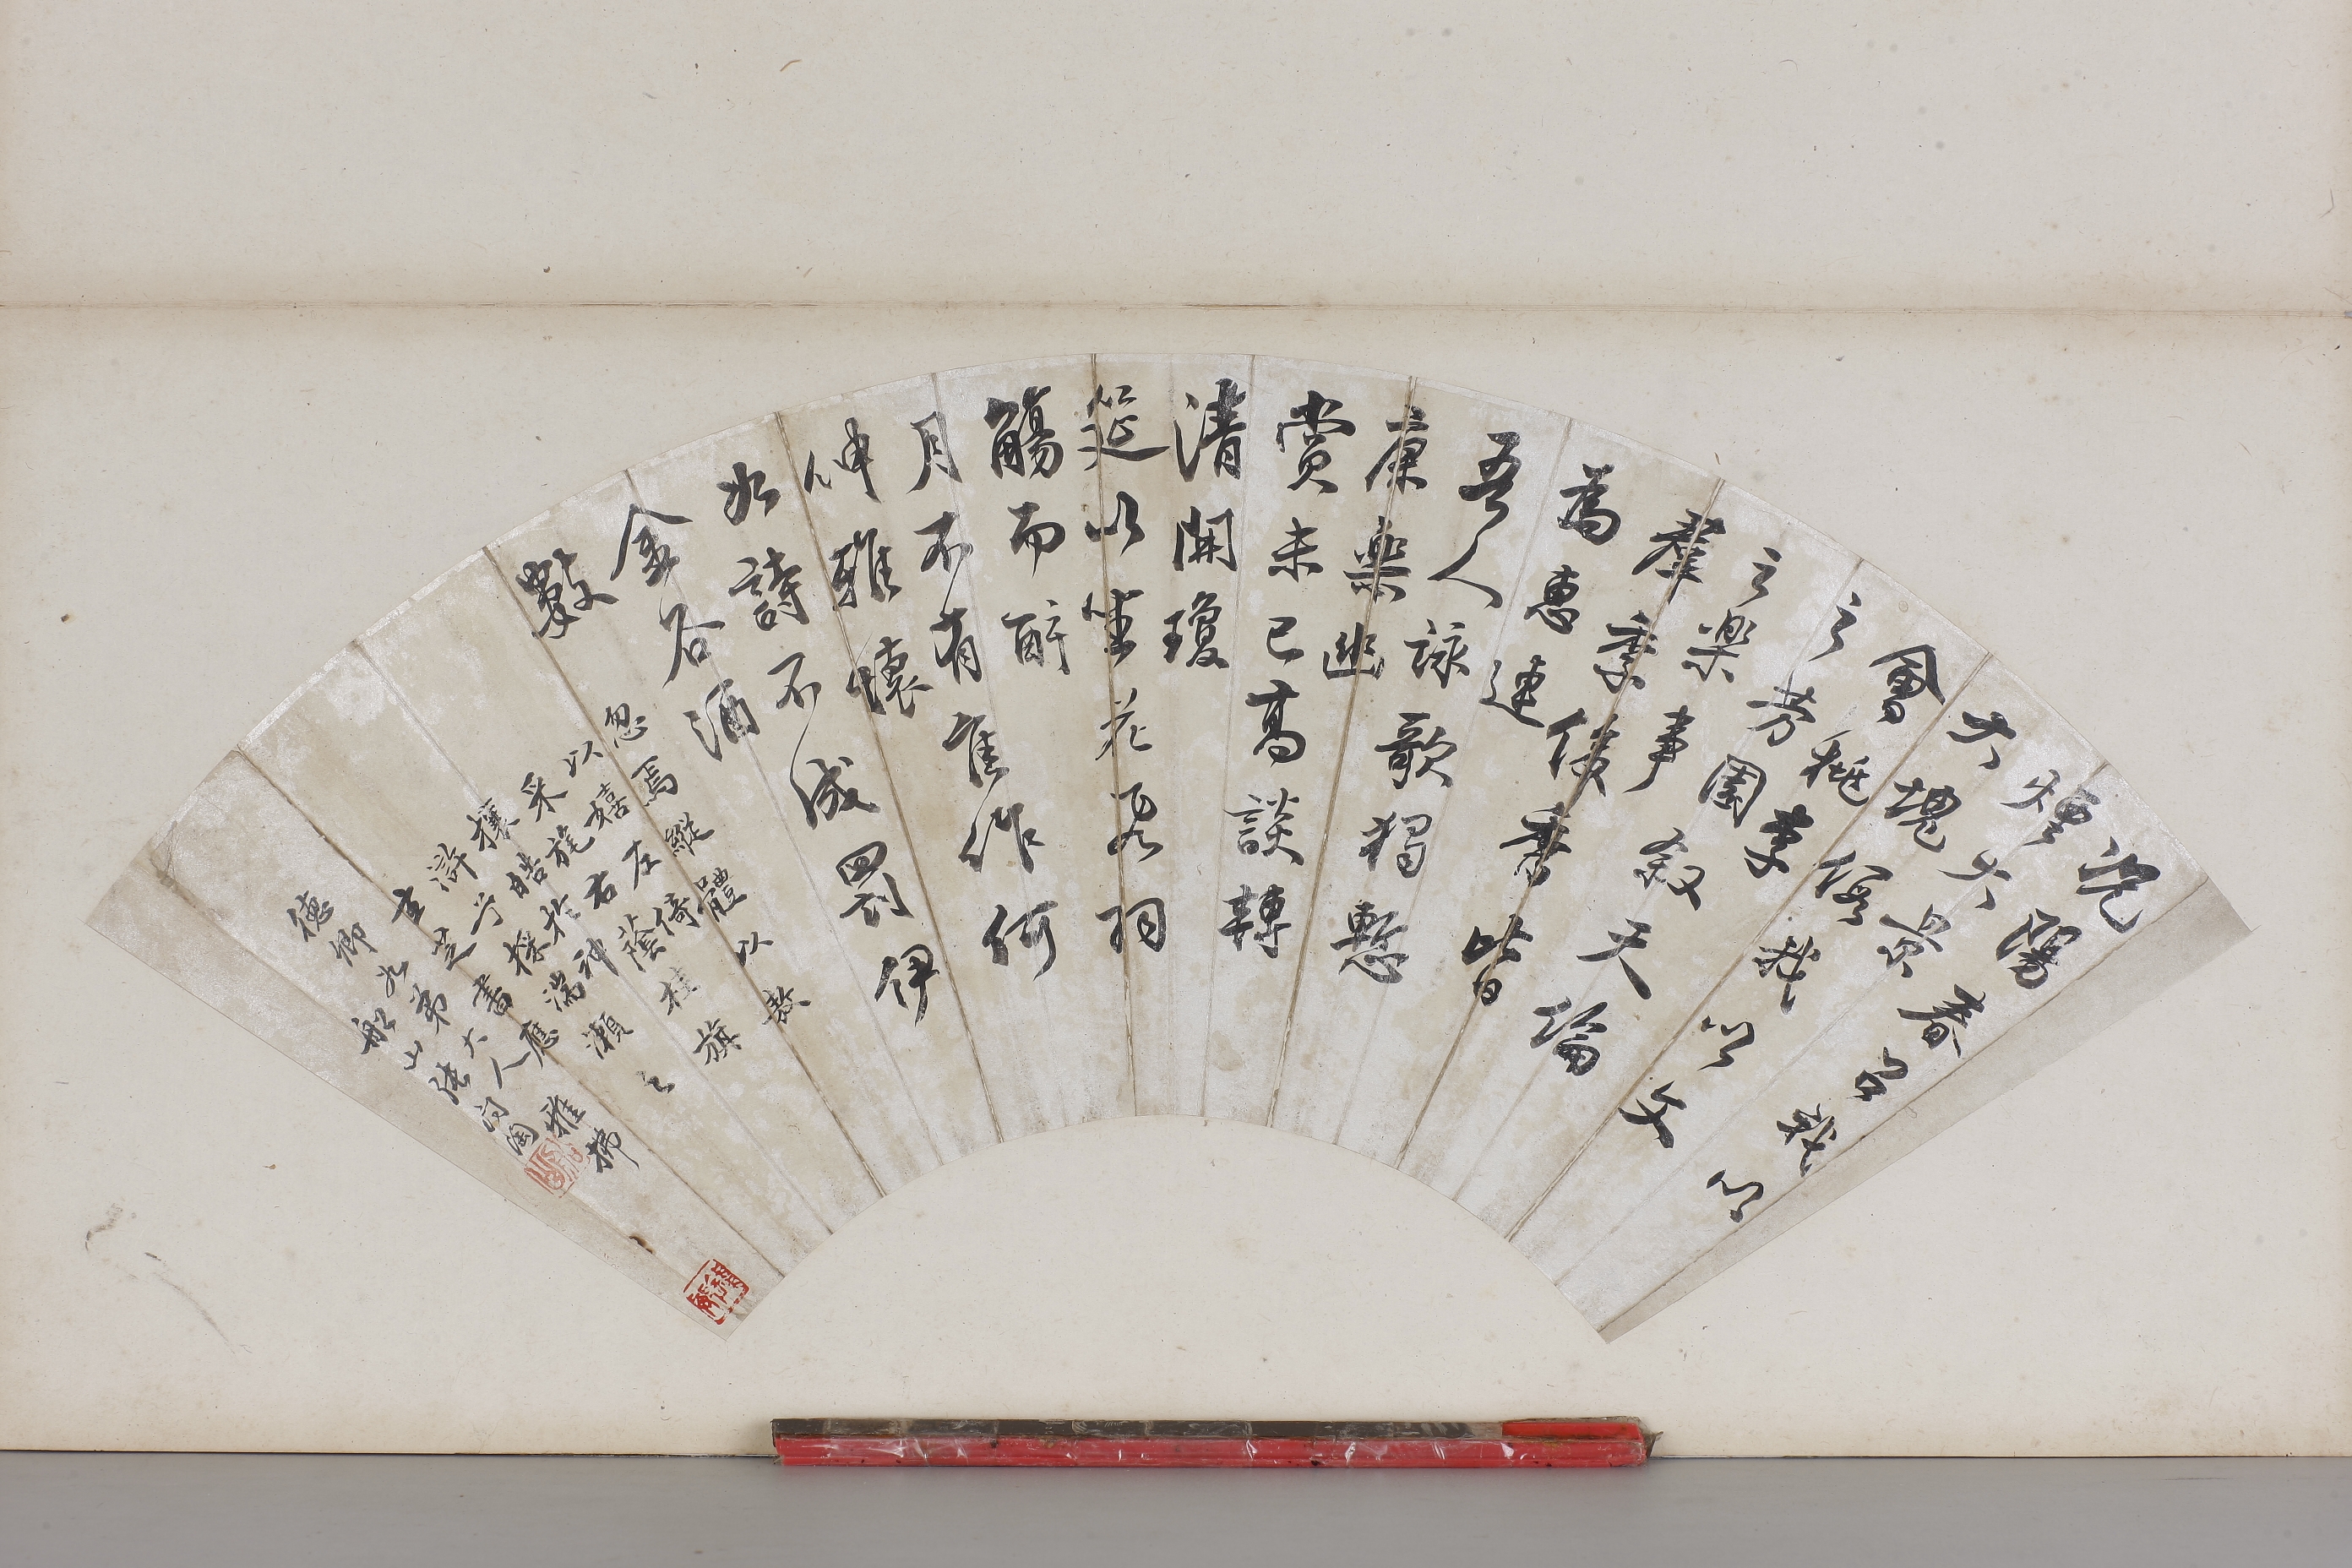 況陽春召我以
煙大景
大塊假我以文
會桃李
之芳園敘天倫
之樂事
羣季俊秀皆
為惠連
吾人詠歌獨慙
康樂幽
賞未已高談轉
清開瓊
筵以坐花飛羽
觴而醉
月不有隹作何
伸雅懷
如詩不成罰伊
金谷酒
數
忽焉縱體以敖
以嬉左倚
采旄右蔭桂旗
攘皓於神
滸兮採湍瀨之
玄芝書應
德卿九弟大人雅拂
船山張問陶